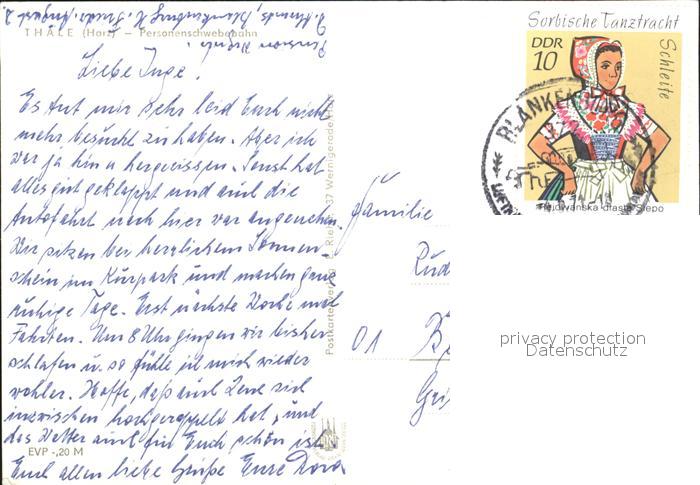 THALE (Harz) – Personenschwebebahn
Liebe Inge.
Es tut mir sehr leid Euch nicht
mehr besucht zu haben. Aber ich
war ja hin u hergerissen. Sonst hat
alles gut geklappt und auch die
Autofahrt nach hier war angenehm.
Wir sitzen bei herrlichem Sonnen-
schein im Kurpark und machen ganz
ruhige Tage. Erst nächste Woche mal
Fahrten. Um 8 Uhr gingen wir bisher
schlafen u. so fühle ich mich wieder
wohler. Hoffe, daß auch Lene sich
inzwischen hochgerappelt hat, und
das Wetter auch für Euch schön ist.
Euch allen liebe Grüße Eure Dora
EVP -,20 M
Postkartenverlag 37 Wernigerode
Sorbische Tanztracht
Schleife
DDR
10
BLANKENBURG
drasta Slepo
Familie
01
privacy protection
Datenschutz